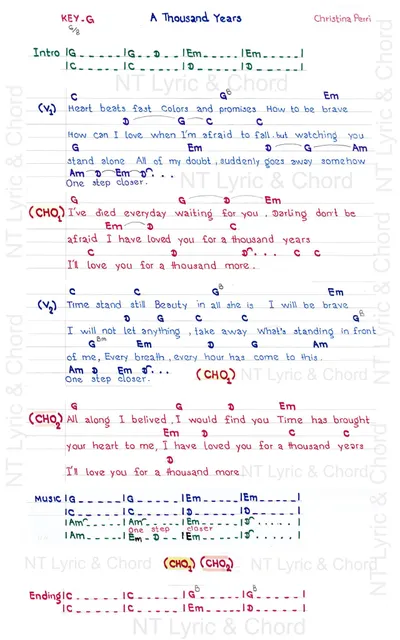 KEY-G A Thousand Years Christina Perri
G/B
Intro |G_____|G__D__|Em____|Em____|
|C_____|C_____|D_____|D_____|
NT Lyric & Chord
C G^B Em
(V1) Heart beats fast Colors and promises How to be brave
D G C C
How can I love when I'm afraid to fall.but watching you
G Em D G Am
stand alone All of my doubt, suddenly goes away somehow
Am D Em D...
One step closer.
NT Lyric & Chord
G G D Em
(CHO1) I've died everyday waiting for you, Darling don't be
Em D C
afraid I have loved you for a thousand years
C D D... C C
I'll love you for a thousand more.
NT Lyric & Chord
C C G^B Em
(V2) Time stand still Beauty in all she is I will be brave
D G C C G^B
I will not let anything, take away What's standing in front
G^Bm Em D G Am
of me, Every breath, every hour has come to this.
Am D Em D...
One step closer. (CHO1)
NT Lyric & Chord
G G D Em
(CHO2) All along I belived, I would find you Time has brought
Em D C C
your heart to me, I have loved you for a thousand years
D
I'll love you for a thousand more
NT Lyric & Chord
MUSIC |G_____|G_____|Em____|Em____|
|C_____|C_____|D_____|D_____|
|Am____|Am____|Em____|D.....|
One step closer
|Am____|Em_D__|Em____|D.....|
NT Lyric & Chord NT Lyric & Chord
(CHO1) (CHO2)
Ending |C_____|C_____|G^B____|G^B____|
|C_____|C_____|Em____|D_____|
NT Lyric & Chord
NT Lyric & Chord
NT Lyric & Chord
NT Lyric & Chord